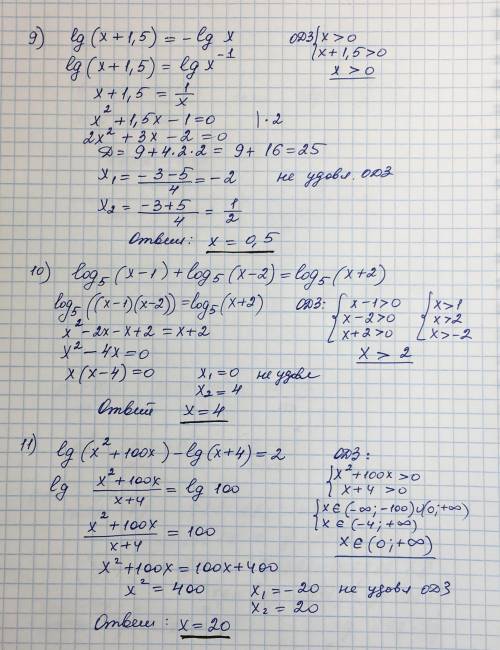 9) lg(x+1,5) = -lg x ОДЗ { x>0
lg(x+1,5) = lg x⁻¹ x+1,5>0
x+1,5 = 1/x x>0
x²+1,5x-1=0 |·2
2x²+3x-2=0
D = 9+4·2·2 = 9+16=25
x₁ = (-3-5)/4 = -2 не удовл. ОДЗ
x₂ = (-3+5)/4 = 1/2
Ответ: x = 0,5
10) log₅(x-1)+log₅(x-2)=log₅(x+2)
log₅((x-1)(x-2))=log₅(x+2) ОДЗ: { x-1>0 { x>1
x²-2x-x+2=x+2 x-2>0 x>2
x²-4x=0 x+2>0 x>-2
x(x-4)=0 x₁=0 не удовл x>2
x₂=4
Ответ x=4
11) lg(x²+100x)-lg(x+4)=2 ОДЗ:
lg (x²+100x)/(x+4) = lg 100 { x²+100x>0
x+4>0
(x²+100x)/(x+4) = 100 { x∈(-∞;-100)∪(0;+∞)
x∈(-4;+∞)
x∈(0;+∞)
x²+100x=100x+400
x²=400 x₁=-20 не удовл ОДЗ
x₂=20
Ответ: x=20